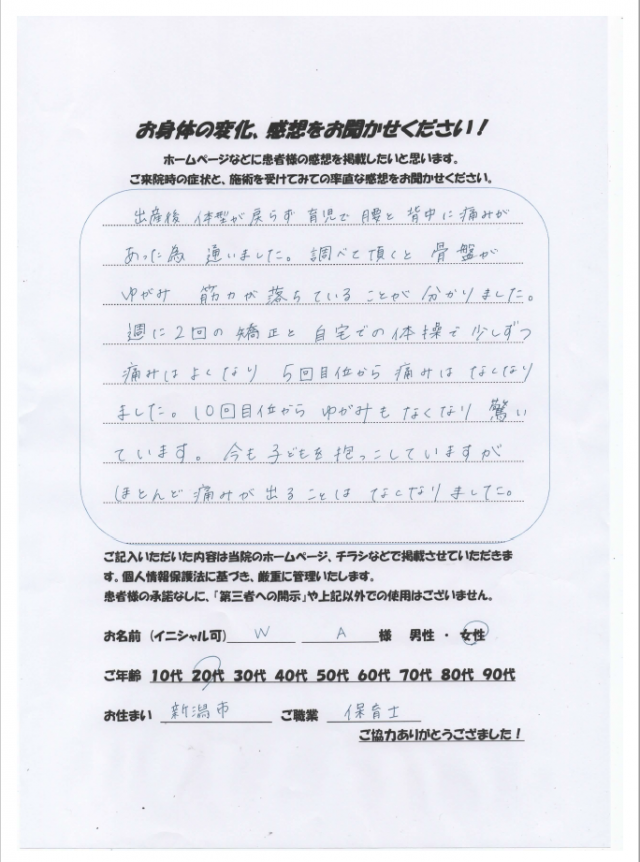 お身体の変化、感想をお聞かせください！
ホームページなどに患者様の感想を掲載したいと思います。
ご来院時の症状と、施術を受けてみての率直な感想をお聞かせください。
出産後 体型が戻らず 育児で 腰と 背中に 痛みが
あった為 通いました。調べて頂くと 骨盤が
ゆがみ 筋力が 落ちている ことが 分かりました。
週に2回の 矯正と 自宅での 体操で 少しずつ
痛みは よくなり 5回目位から 痛みは なくなり
ました。10回目位から ゆがみも なくなり 驚い
ています。今も 子どもを 抱っこしていますが
ほとんど 痛みが 出ることは なくなりました。
ご記入いただいた内容は当院のホームページ、チラシなどで掲載させていただきま
す。個人情報保護法に基づき、厳重に管理いたします。
患者様の承諾なしに、「第三者への開示」や上記以外での使用はございません。
お名前（イニシャル可） W A 様 男性 ・ 女性
ご年齢 10代 20代 30代 40代 50代 60代 70代 80代 90代
お住まい 新潟市 ご職業 保育士
ご協力ありがとうござました！